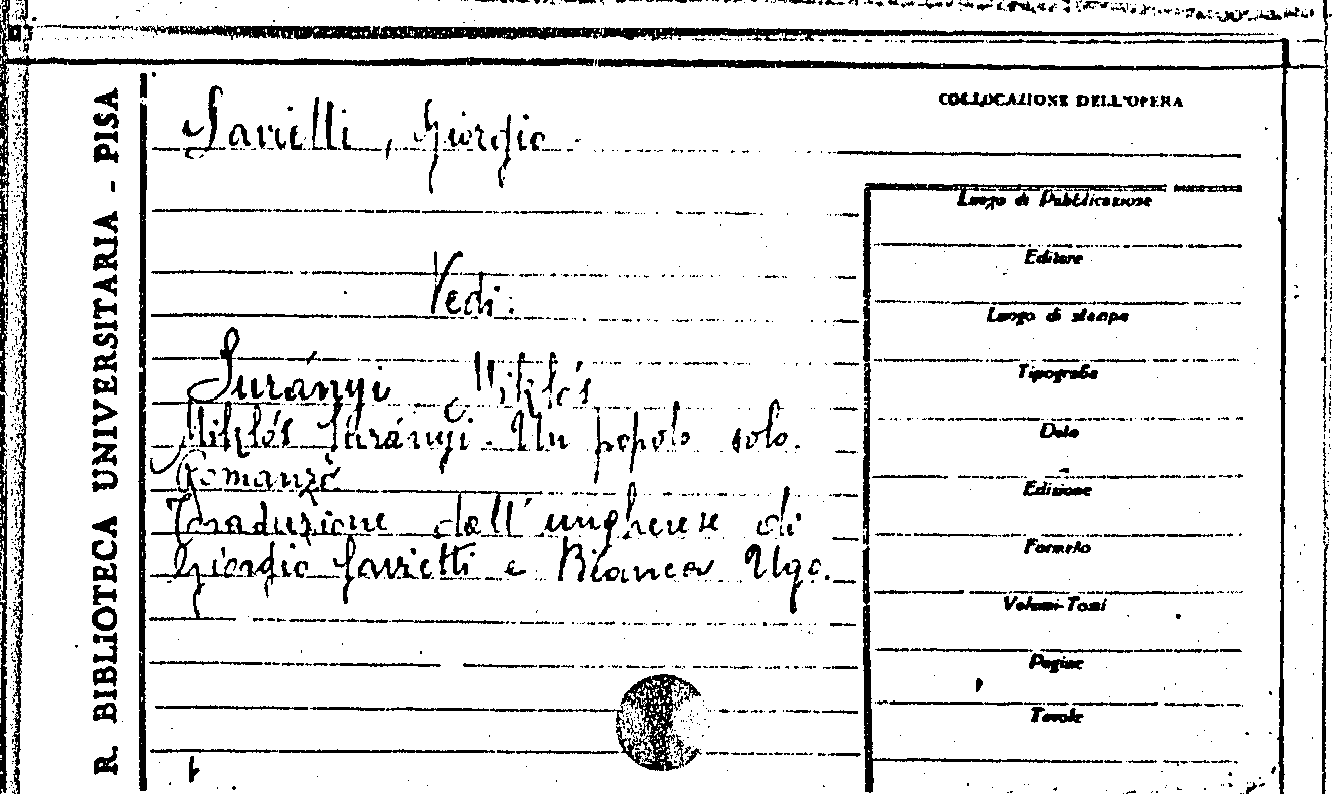 R. BIBLIOTECA UNIVERSITARIA - PISA
COLLOCAZIONE DELL'OPERA
Giorgio
Vedi:
Surányi Miklós
Miklós Surányi. Un popolo solo.
Romanzo
Traduzione dall'ungherese di
Giorgio e Bianca Ugo.
Luogo di Pubblicazione
Editore
Luogo di stampa
Tipografia
Data
Edizione
Formato
Volumi-Tomi
Pagine
Tavole